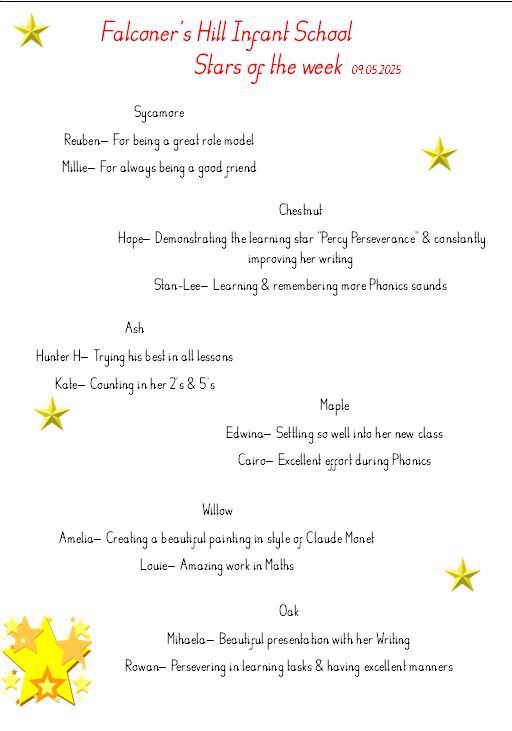 Falconer's Hill Infant School
Stars of the week 09.05.2025
Sycamore
Reuben– For being a great role model
Millie– For always being a good friend
Chestnut
Hope– Demonstrating the learning star "Percy Perseverance" & constantly
improving her writing
Stan-Lee– Learning & remembering more Phonics sounds
Ash
Hunter H– Trying his best in all lessons
Kate– Counting in her 2's & 5's
Maple
Edwina– Settling so well into her new class
Cairo– Excellent effort during Phonics
Willow
Amelia– Creating a beautiful painting in style of Claude Monet
Louie– Amazing work in Maths
Oak
Mihaela– Beautiful presentation with her Writing
Rowan– Persevering in learning tasks & having excellent manners